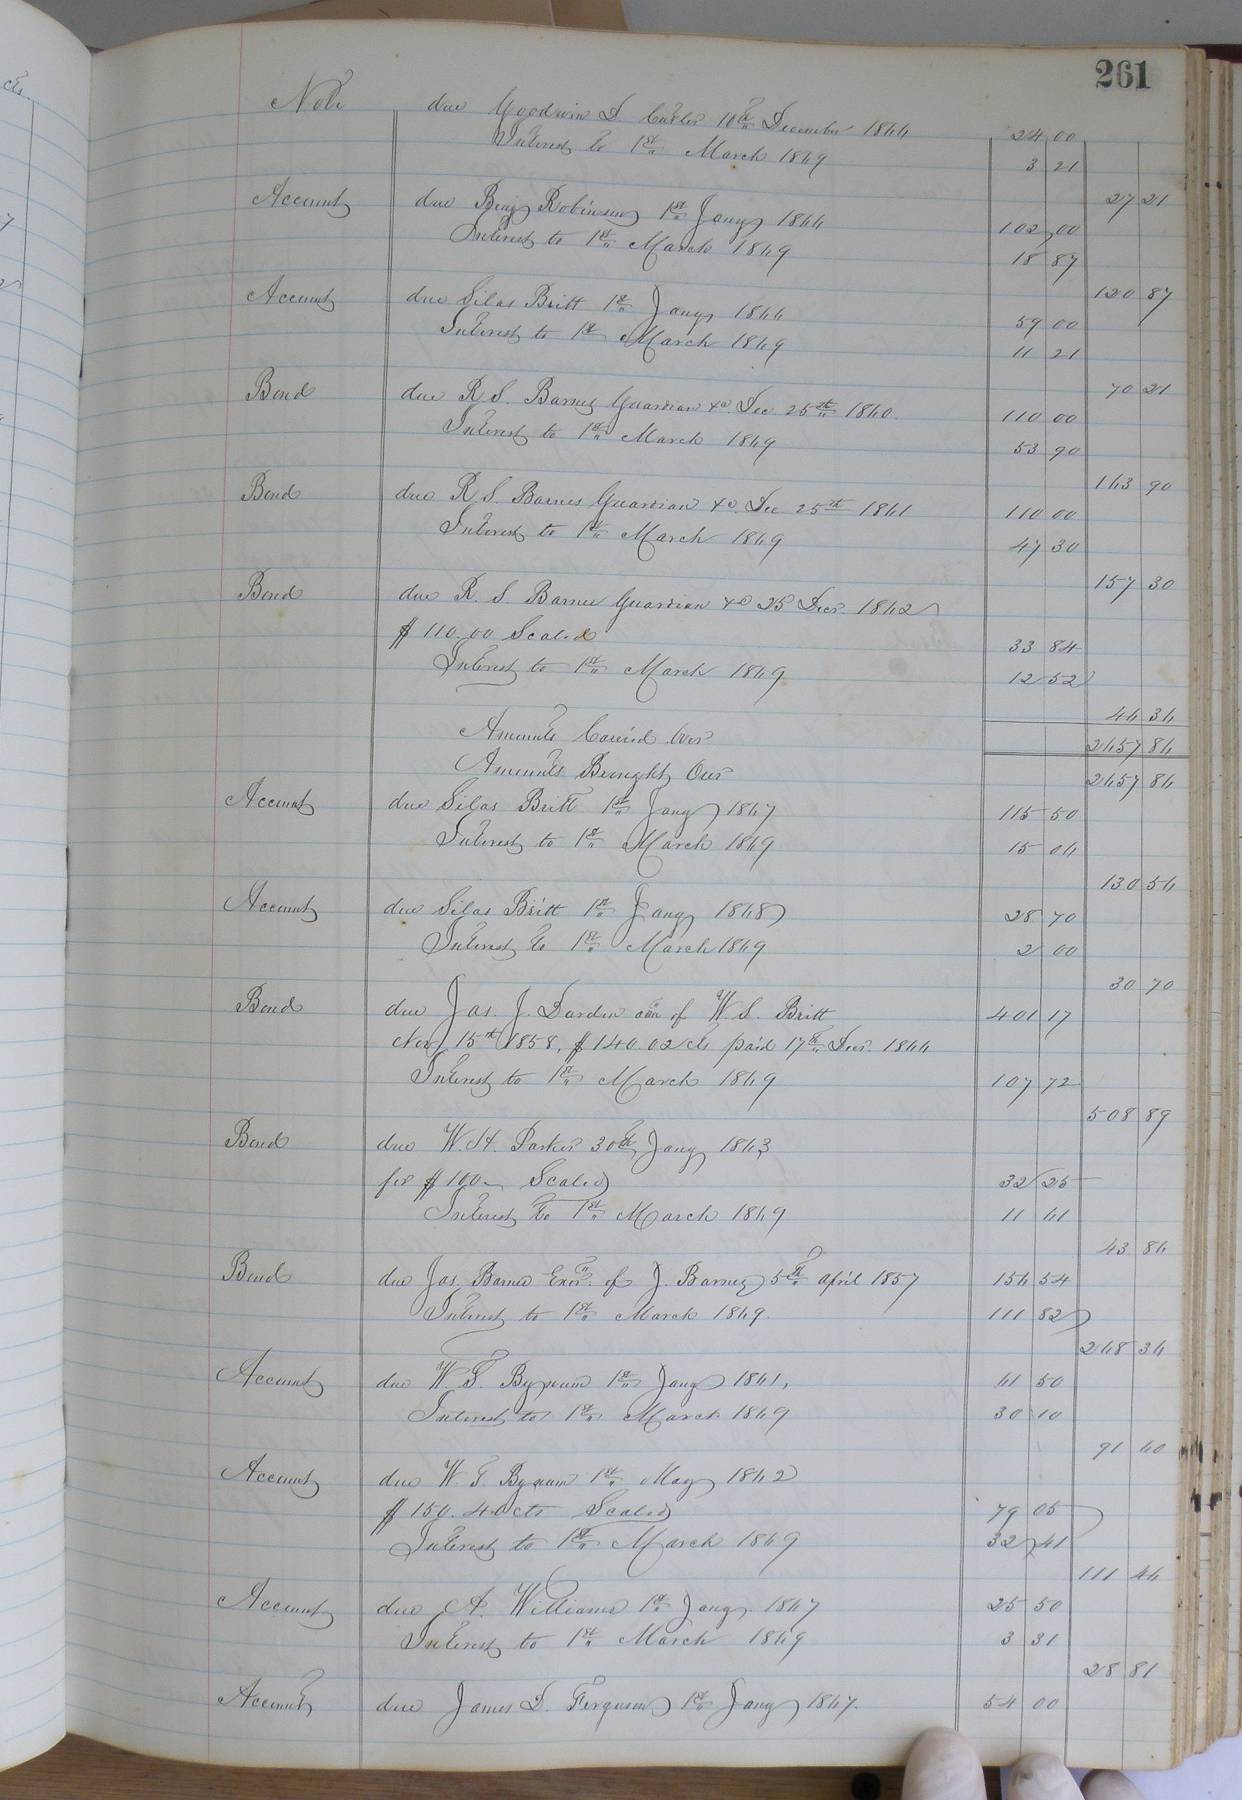 261
Note due Goodwin D Carter 10th December 1866 24 00
Interest to 1st March 1869 3 21
27 21
Account due Benj Robinson 1st Jany 1866 102 00
Interest to 1st March 1869 18 87
120 87
Account due Silas Britt 1st Jany 1866 59 00
Interest to 1st March 1869 11 21
70 21
Bond due R S. Barnes Guardian &c. Dec 25th 1860 110 00
Interest to 1st March 1869 53 90
163 90
Bond due R S. Barnes Guardian &c. Dec 25th 1861 110 00
Interest to 1st March 1869 47 30
157 30
Bond due R. S Barnes Guardian &c 25 Decr. 1862
$110.00 Scaled 33 84
Interest to 1st March 1869 12 52
46 36
Amounts Carried Over 2657 86
Amounts Brought Over 2657 86
Account due Silas Britt 1st Jany 1867 115 50
Interest to 1st March 1869 15 06
130 56
Account due Silas Britt 1st Jany 1868 28 70
Interest to 1st March 1869 2 00
30 70
Bond due Jas. J. Darden of W. S. Britt 401 17
Nov 15th 1858, $140.02 cts paid 17th Decr. 1866
Interest to 1st March 1869 107 72
508 89
Bond due W. H. Parker 30th Jany 1863
for $100 Scaled 32 25
Interest to 1st March 1869 11 61
43 86
Bond due Jas. Barnes Exor. of J. Barnes 5th april 1857 156 54
Interest to 1st March 1869. 111 82
268 36
Account due W. T. Bynum 1st Jany 1861, 61 50
Interest to 1st March 1869 30 10
91 60
Account due W. T. Bynum 1st May 1862
$150.40 cts Scaled 79 05
Interest to 1st March 1869 32 41
111 46
Account due A. Williams 1st Jany. 1867 25 50
Interest to 1st March 1869 3 31
28 81
Account due James D. Ferguson 1st Jany 1867. 54 00